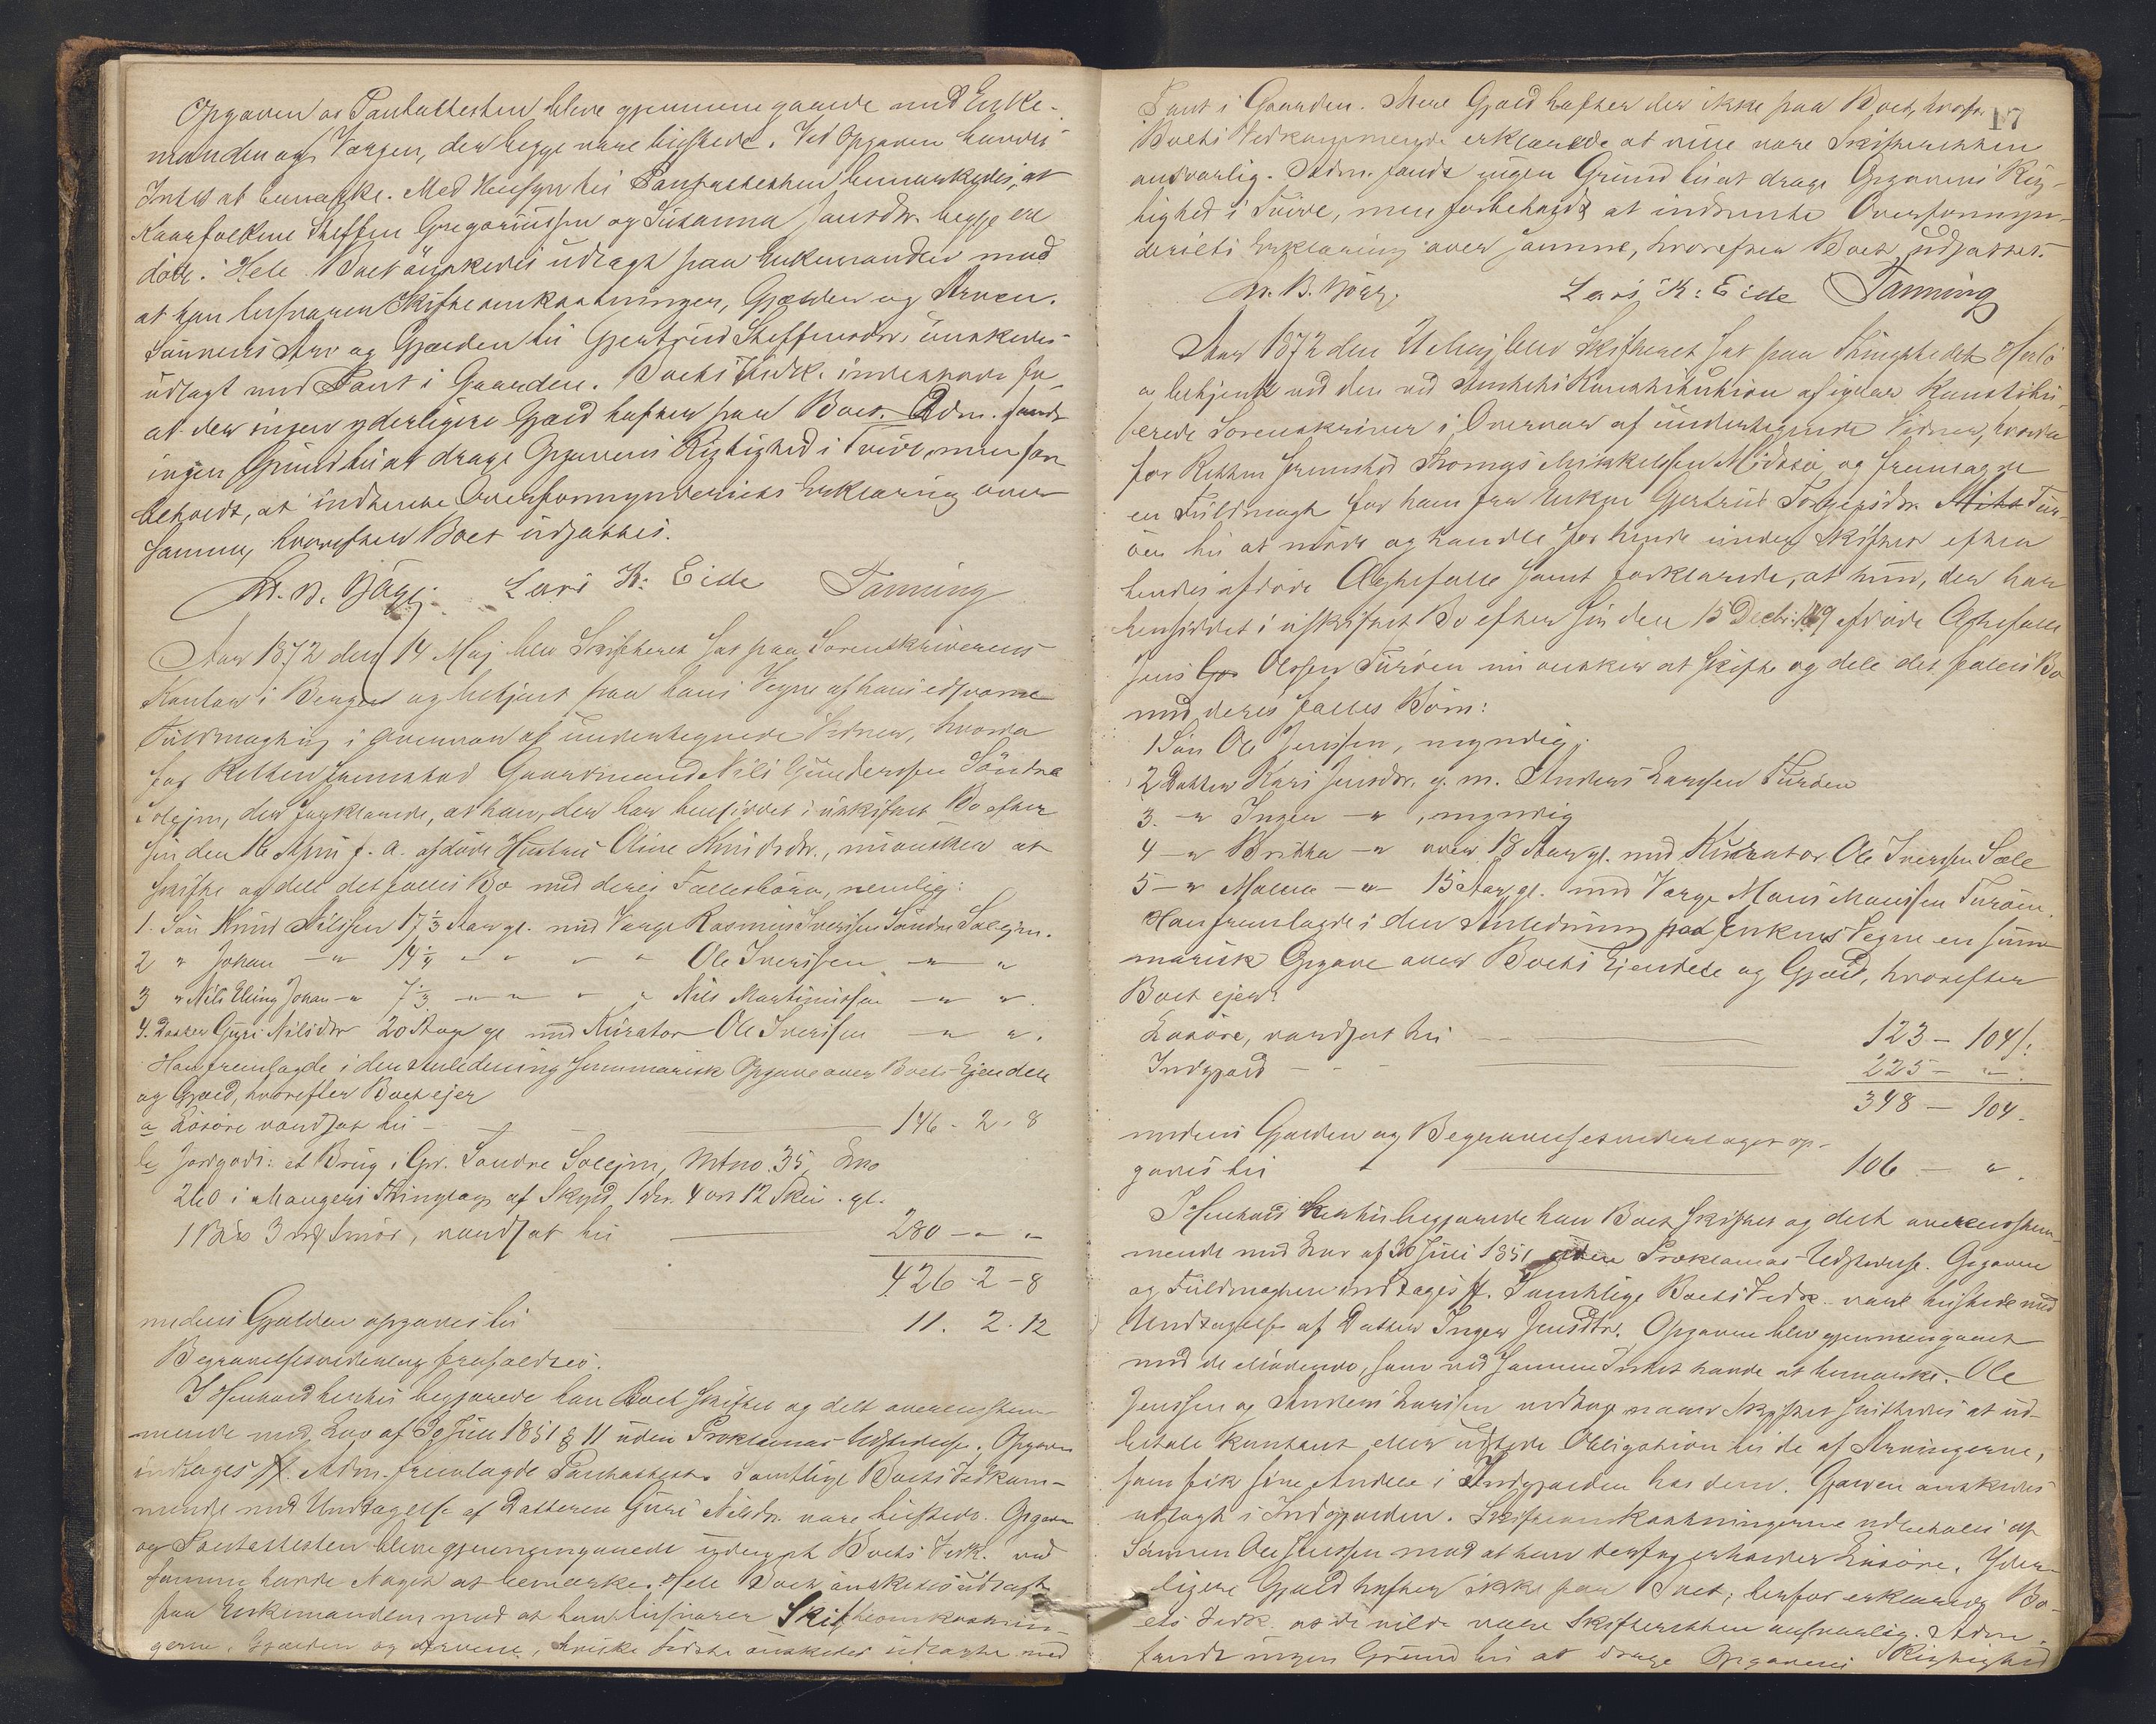 Opgaven og Pantattesten bleve gjennemgaaede med Enke-
manden og Vargen, der begge vare tilstede. Ved Opgaven havdes
Intet at bemærke. Med Hensyn til Pantattesten bemærkedes, at
Kaarfolkene Steffen Gregoriussen og Susanna Jansdtr. begge ere
døde. Hele Boet önskedes udlagt paa Enkemanden mod
at han tilsvarer Skifteomkostninger, Gjælden og Arven.
Sønnens Arv og Gjælden til Gjertrud Steffensdtr. önskedes
udlagt med Pant i Gaarden. Boets Vedk. indestode for
at der ingen yderligere Gjæld hefter paa Boet. Adm. fandt
ingen Grund til at drage Opgavens Rigtighed i Tvivl, men for-
beholdt, at indhente Overformynderiets Erklæring over
samme, hvorefter Boet udsattes.
Lars K. Eide Tanning
Aar 1872 den 14 Maj blev Skifteret sat paa Sorenskriverens
Kontor i Bergen og betjent paa hans Vegne af hans edsvorne
Fuldmægtig i Overvær af undertegnede Vidner, hvorda
for Retten fremstod Gaardmand Nils Gundersen Söndre
Solejm, der forklarede, at han, der har hensiddet i uskiftet Bo efter
sin den 16 April f. A. afdøde Hustru Oline Knudsdtr., nu önsker at
skifte og dele det fælles Bo med deres Fællesbörn, nemlig:
1. Søn Knud Nilssen 17 1/3 Aar gl. med Varge Rasmus Iverssen Söndre Solejm.
2 " Johan -"- 14 1/4 - " " " Ole Iverssen -"- "
3 " Nils Elling Johan -"- 7 1/3 -"- " " " Nils Martinussen -"- ".
4. Datter Guri Nilsdtr 20 Aar gl med Kurator Ole Iverssen " ".
Han fremlagde i den Anledning summarisk Opgave over Boets Ejendele
og Gjæld, hvorefter Boet ejer
a Lösöre værdsat til - 146 - 2 - 8
b Jordgods: et Brug i Gr. Söndre Solejm, Mtno. 35, Lno
260 i Mangers Thinglag af Skyld 1 dr. 4 ort 12 Skill. gl.
1 Bpd 3 mk Smör, værdsat til 280 - " -
426 - 2 - 8
medens Gjælden opgaves til 11. 2. 12
Begravelsesvederlag frafaldtes.
I Henhold hertil begjærede han Boet skiftet og delt overensstem-
mende med Lov af 30 Juli 1851 § 11 uden Proklamas Udstedelse. Opgaven
indtages ff. Adm. fremlagde Pantattest. Samtlige Boets Vedkom-
mende med Undtagelse af Datteren Guri Nilsdtr. vare tilstede. Opgaven
og Pantattesten bleve gjennemgaaede uden at Boets Vedk. ved
samme havde Noget at bemærke. Hele Boet önskedes udlagt
paa Enkemanden mod at han tilsvarer Skifteomkostnin-
gerne, Gjælden og Arvene, hvilke sidste önskedes udlagte med
17
Pant i Gaarden. Mere Gjæld hefter der ikke paa Boet, hvorfor
Boets Vedkommende erklærede at ville være Skifteretten
ansvarlig. Adm. fandt ingen Grund til at drage Opgavens Rig-
tighed i Tvivl, men forbeholdt at indhente Overformyn-
deriets Erklæring over samme, hvorefter Boet udsattes.
Lars K. Eide Tanning
Aar 1872 den Maj blev Skifteret sat paa Thingstedet Herlö
og betjent ved den ved Amtets Konstitution af igaar Konstitu-
erede Sorenskriver i Overvær af undertegnede Vidner, hvorda
for Retten fremstod Thomas Mikkelssen Midtsö og fremlagde
en Fuldmagt for ham fra Enken Gjertrud Torgersdtr. Tur-
öen til at möde og handle for hende under Skiftet efter
hendes afdöde Ægtefælle samt forklarede, at hun, der har
hensiddet i uskiftet Bo efter sin den 15 Decbr. 1869 afdöde Ægtefælle
Jens Olssen Turöen nu önsker at skifte og dele det fælles Bo
med deres fælles Börn:
1 Sön Ole Jenssen, myndig.
2 Datter Kari Jensdtr. g. m. Anders Larssen Turöen
3. -"- Inger -"-, myndig
4 -"- Britha -"- over 18 Aar gl. med Kurator Ole Iverssen Sæle
5 -"- Malene -"- 15 Aar gl. med Varge Mons Monssen Turöen.
Han fremlagde i den Anledning paa Enkens Vegne en sum-
marisk Opgave over Boets Ejendele og Gjæld, hvorefter
Boet ejer:
Lösöre, værdsat til - - 123 - 104 ß.
Indgjæld - - - 225 - " -
348 - 104.
medens Gjælden og Begravelsesvederlaget op-
gaves til 106 - ".
I Henhold hertil begjærede han Boet skiftet og delt overensstem-
mende med Lov af 30 Juli 1851 uden Proklamas Udstedelse. Opgaven
og Fuldmagten indtages ff. Samtlige Boets Vedk. vare tilstede med
Undtagelse af Datter Inger Jensdtr. Opgaven blev gjennemgaaet
med de Mödende, som ved samme Intet havde at bemærke. Ole
Jenssen og Anders Larssen vedtog naar Skiftet sluttedes at ud-
betale kontant eller udstede Obligation til de af Arvingerne,
som fik sine Andele i Indgjælden hos dem. Gjælden önskedes
udlagt i Indgjælden. Skifteomkostningerne udbetales af
Sönnen Ole Jenssen mod at han derfor erholder Lösöre. Yder-
ligere Gjæld hefter ikke paa Boet; herfor erklærede Bo-
ets Vedk. at de vilde være Skifteretten ansvarlig. Adm.
fandt ingen Grund til at drage Opgavens Rigtighed